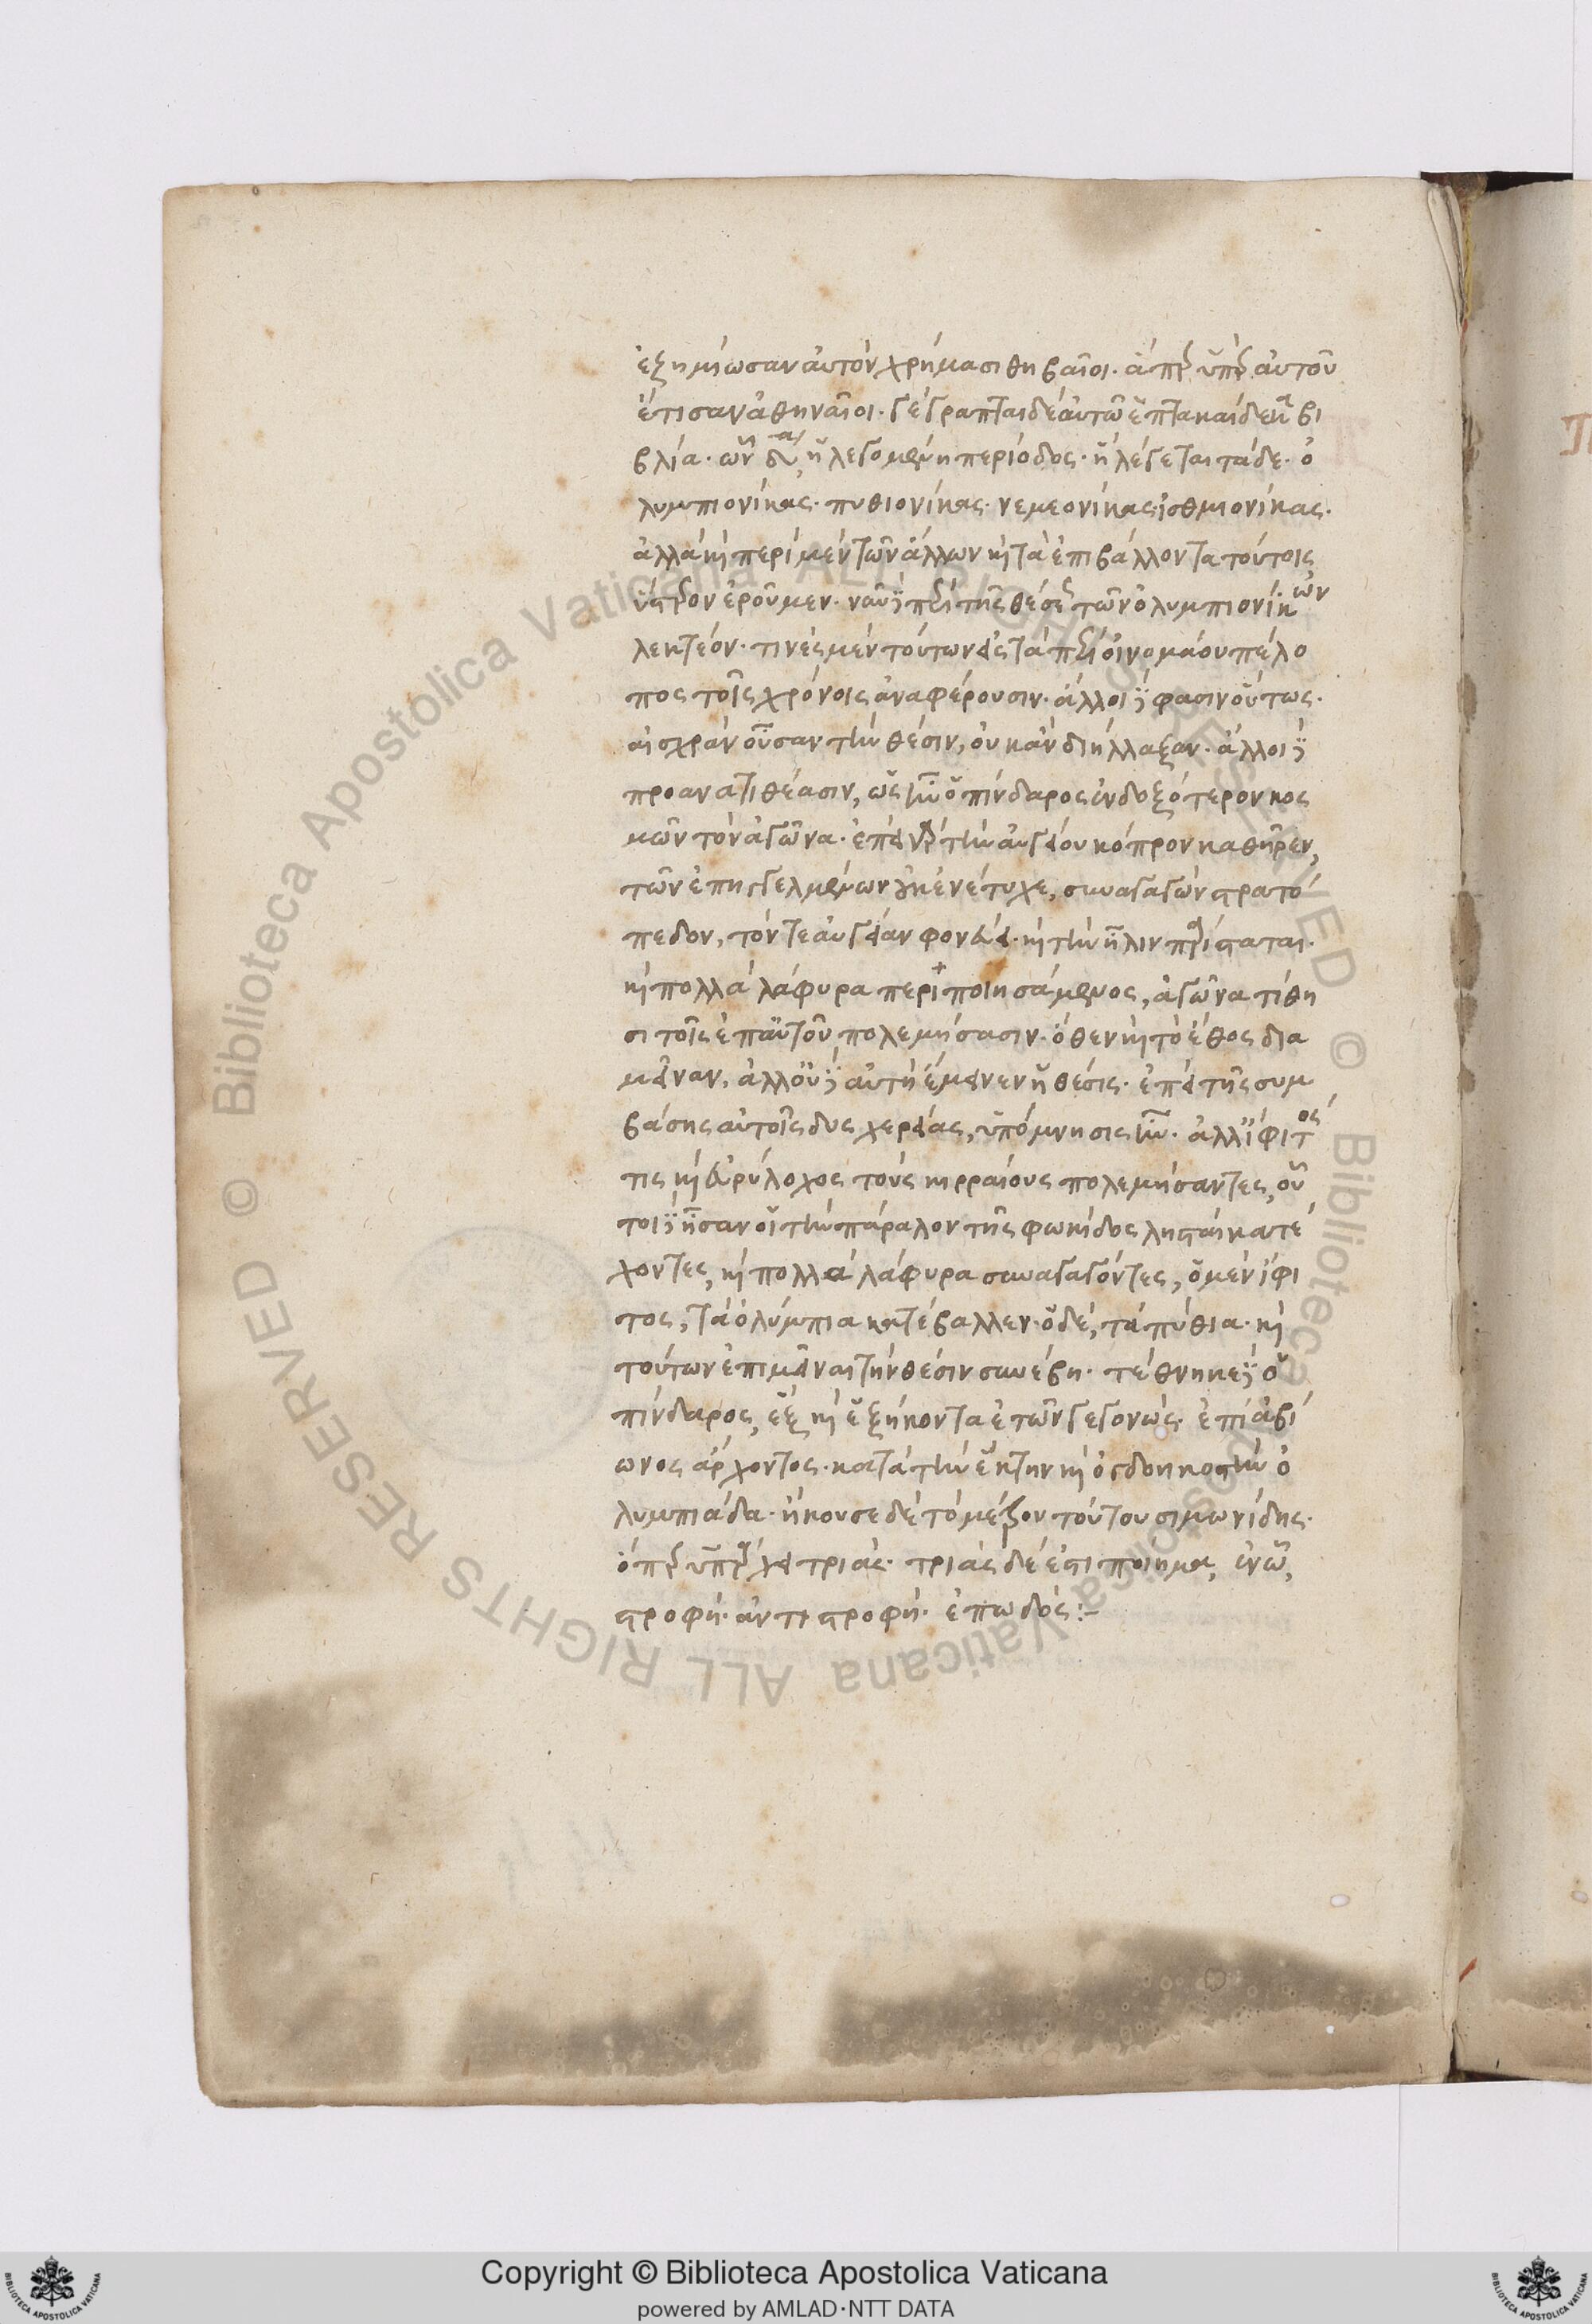 ἐζημίωσαν αὐτὸν χρήμασι θηβαῖοι. ἅπερ ὑπὲρ αὐτοῦ
ἔτισαν ἀθηναῖοι. γέγραπται δὲ αὐτῶ ἑπτακαίδεκα βι
βλία. ὧν ἡ λεγομένη περίοδος. ἣ λέγεται τάδε. ὀ
λυμπιονίκας. πυθιονίκας. νεμεονίκας ἰσθμιονίκας.
ἀλλὰ καὶ περὶ μὲν τῶν ἄλλων καὶ τὰ ἐπιβάλλοντα τούτοις
ὕστερον ἐροῦμεν. νῦν δὲ περὶ τῆς θέσεως τῶν ὀλυμπιονίκων
λεκτέον. τινὲς μὲν τούτων εἰς τὰ περὶ οἰνομάου πέλο
πος τοῖς χρόνοις ἀναφέρουσιν. ἄλλοι δὲ φασὶν οὕτως.
αἰσχρὰν οὖσαν τὴν θέσιν, οὐκ ἂν διήλλαξαν. ἄλλοι δὲ
προανατιθέασιν, ὡς ἦν ὁ πίνδαρος ἐνδοξότερον κοσ
μῶν τὸν ἀγῶνα. ἐπεὶ γὰρ τὴν αὐγείου κόπρον καθῆρεν,
τῶν ἐπηγγελμένων οὐκ ἐνέτυχε, συναγαγὼν στρατό
πεδον, τόν τε αὐγείαν φονεύει. καὶ τὴν ἦλιν παρίσταται.
καὶ πολλὰ λάφυρα περιποιησάμενος, ἀγῶνα τίθη
σι τοῖς ἐπ αὐτοῦ πολεμήσασιν. ὅθεν καὶ τὸ ἔθος δια
μεῖναν. ἀλλ οὐδ αὐτὴ ἔμεινεν ἡ θέσις. ἐπεὶ τῆς συμ
βάσης αὐτοῖς δυσχερείας, ὑπόμνησις ἦν. ἀλλ ἴφιτός
τις καὶ εὐρύλοχος τοὺς κιρραίους πολεμήσαντες, οὗ
τοι δὲ ἦσαν οἱ τὴν πάραλον τῆς φωκίδος λησταὶ κατέ
χοντες, καὶ πολλὰ λάφυρα συναγαγόντες, ὁ μὲν ἴφι
τος, τὰ ὀλύμπια κατέβαλλεν. ὁ δὲ, τὰ πύθια. καὶ
τούτων ἐπιμεῖναι τὴν θέσιν συνέβη. τέθνηκε δὲ ὁ
πίνδαρος, ἓξ καὶ ἑξήκοντα ἐτῶν γεγονώς. ἐπὶ ἀβί
ωνος ἄρχοντος. κατὰ τὴν ἕκτην καὶ ὀγδοηκοστὴν ὀ
λυμπιάδα. ἤκουσε δὲ τὸ μέζον τούτου σιμωνίδης.
ὅπερ ὑπάρχει τριάς. τριὰς δέ ἐστι ποίημα, ἐν ὧ,
στροφή. ἀντιστροφή. ἐπωδός:-
Copyright © Biblioteca Apostolica Vaticana
powered by AMLAD·NTT DATA